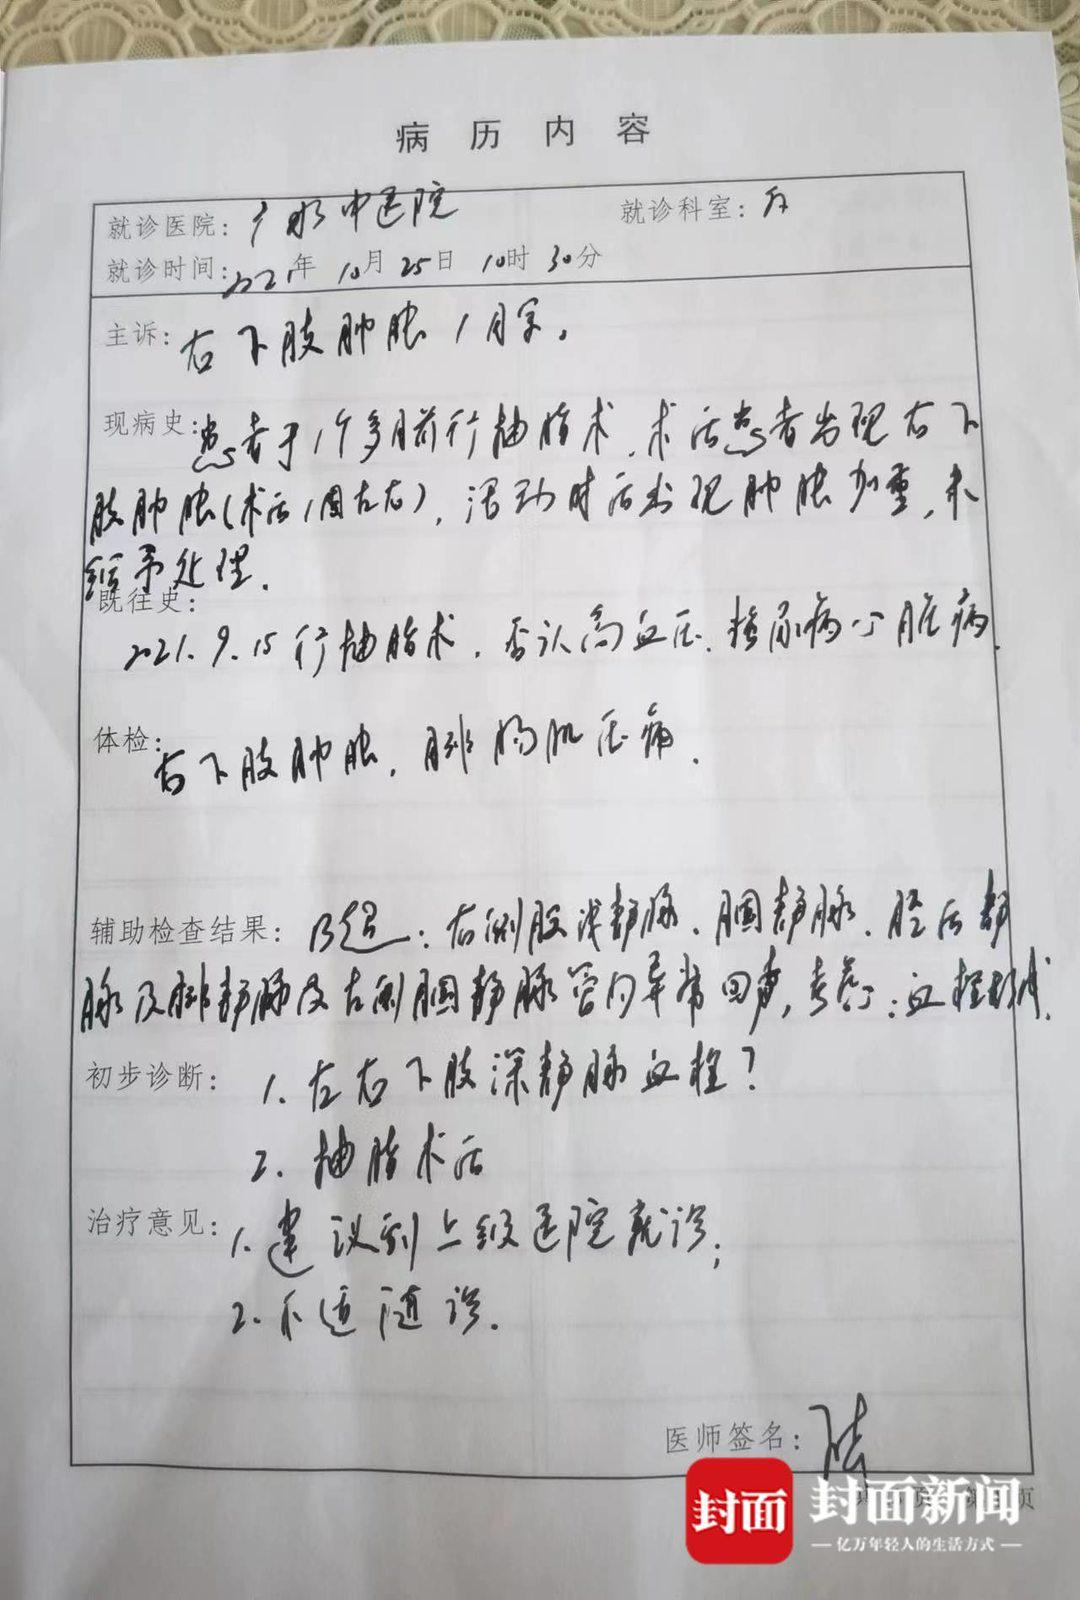 病历内容
就诊医院：广水中医院 就诊科室：
就诊时间：2021年 10月 25日 10时 30分
主诉：右下肢肿胀1月余。
现病史：患者于1个多月前行抽脂术，术后患者出现右下
肢肿胀（术后1周左右），活动时后出现肿胀加重，未
给予处理。
既往史：
2021.9.15行抽脂术，否认高血压、糖尿病、心脏病
体检：
右下肢肿胀，腓肠肌压痛。
辅助检查结果：B超：右侧股浅静脉、腘静脉、胫后静
脉及腓静脉及左侧腘静脉管内异常回声，考虑：血栓形成.
初步诊断：1. 左右下肢深静脉血栓？
2. 抽脂术后
治疗意见：1. 建议到上级医院就诊；
2. 不适随诊.
医师签名：陆
页 第 页
封面 封面新闻
亿万年轻人的生活方式